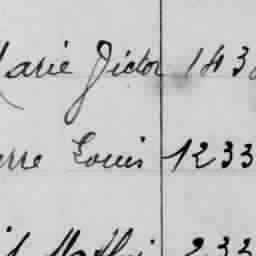 Marie Victor 143
erre Louis 1233
233